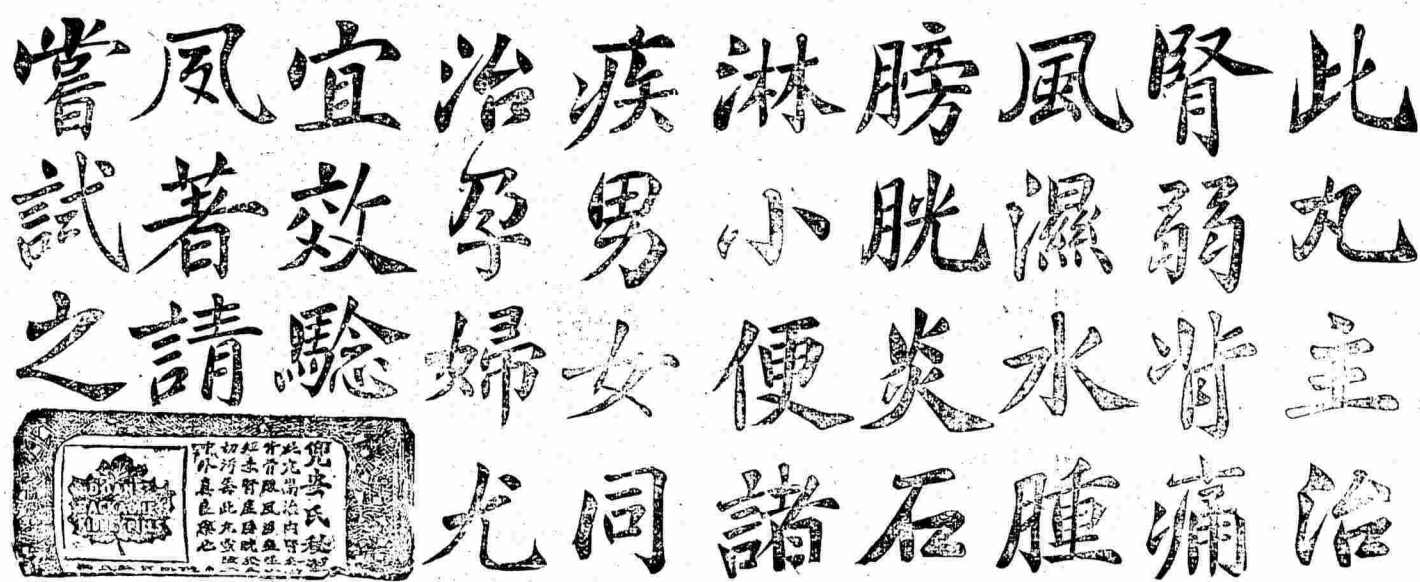 此丸主治
腎弱背痛
風濕水腫
膀胱炎石
淋小便諸
疾男女同
治孕婦尤
宜效騐
夙著請
嘗試之
兜安氏
DOAN'S
BACKACHE
KIDNEY PILLS